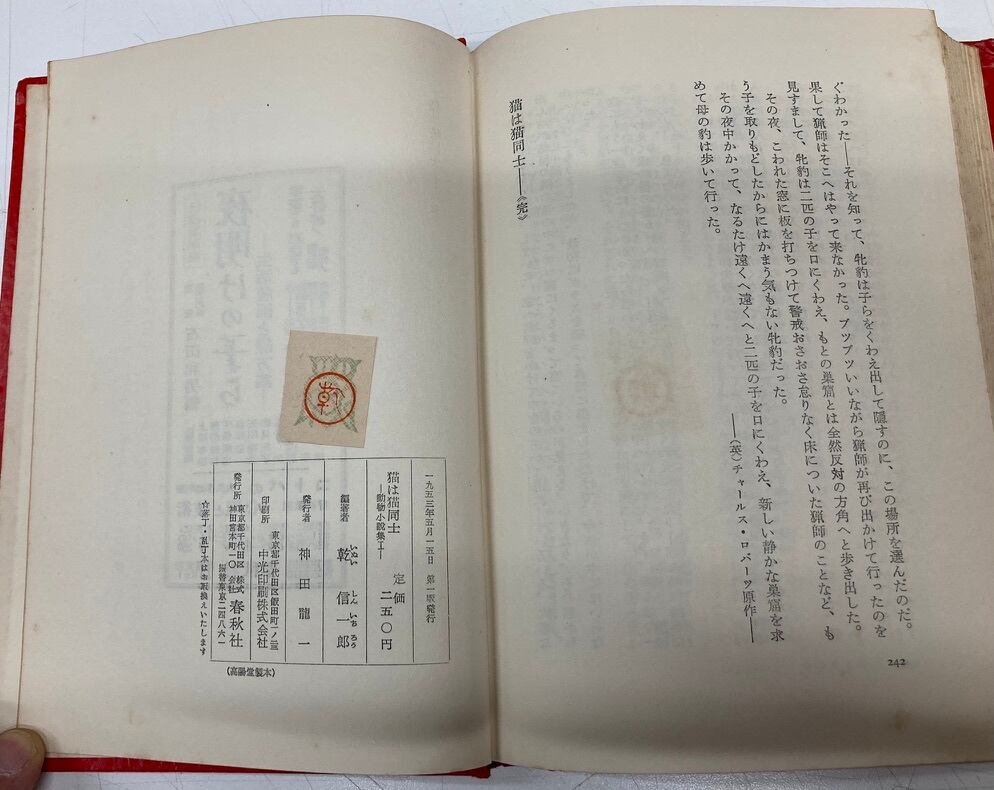 くわかった――それを知って、牝豹は子らをくわえ出して隠すのに、この場所を選んだのだ。
果して猟師はそこへはやって来なかった。ブツブツいいながら猟師が再び出かけて行ったのを
見すまして、牝豹は二匹の子を口にくわえ、もとの巣窟とは全然反対の方角へと歩き出した。
その夜、こわれた窓に板を打ちつけて警戒おさおさ怠りなく床についた猟師のことなど、も
う子を取りもどしたからにはかまう気もない牝豹だった。
その夜中かかって、なるたけ遠くへ遠くへと二匹の子を口にくわえ、新しい静かな巣窟を求
めて母の豹は歩いて行った。
――(英)チャールス・ロバーツ原作――
猫は猫同士――《完》
242
乾
一九五三年五月一五日 第一版発行
猫は猫同士
―動物小説集Ⅰ―
定価 二五〇円
編著者 乾信一郎
いぬい しん いち ろう
発行者 神田龍一
印刷所 東京都千代田区飯田町一ノ二三
中光印刷株式会社
発行所 東京都千代田区神田宮本町一〇
株式会社 春秋社
振替東京二四八六一
☆落丁・乱丁本はお取換えいたします
(高陽堂製本)
夜明けの子ら